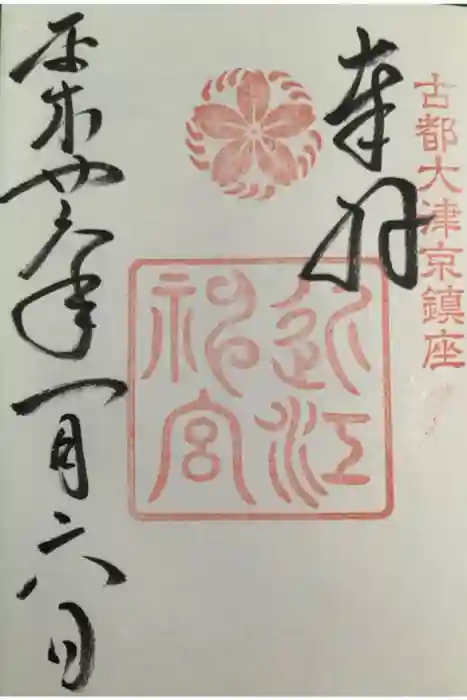 古都大津京鎮座
奉拝
近江神宮
平成廿六年一月六日